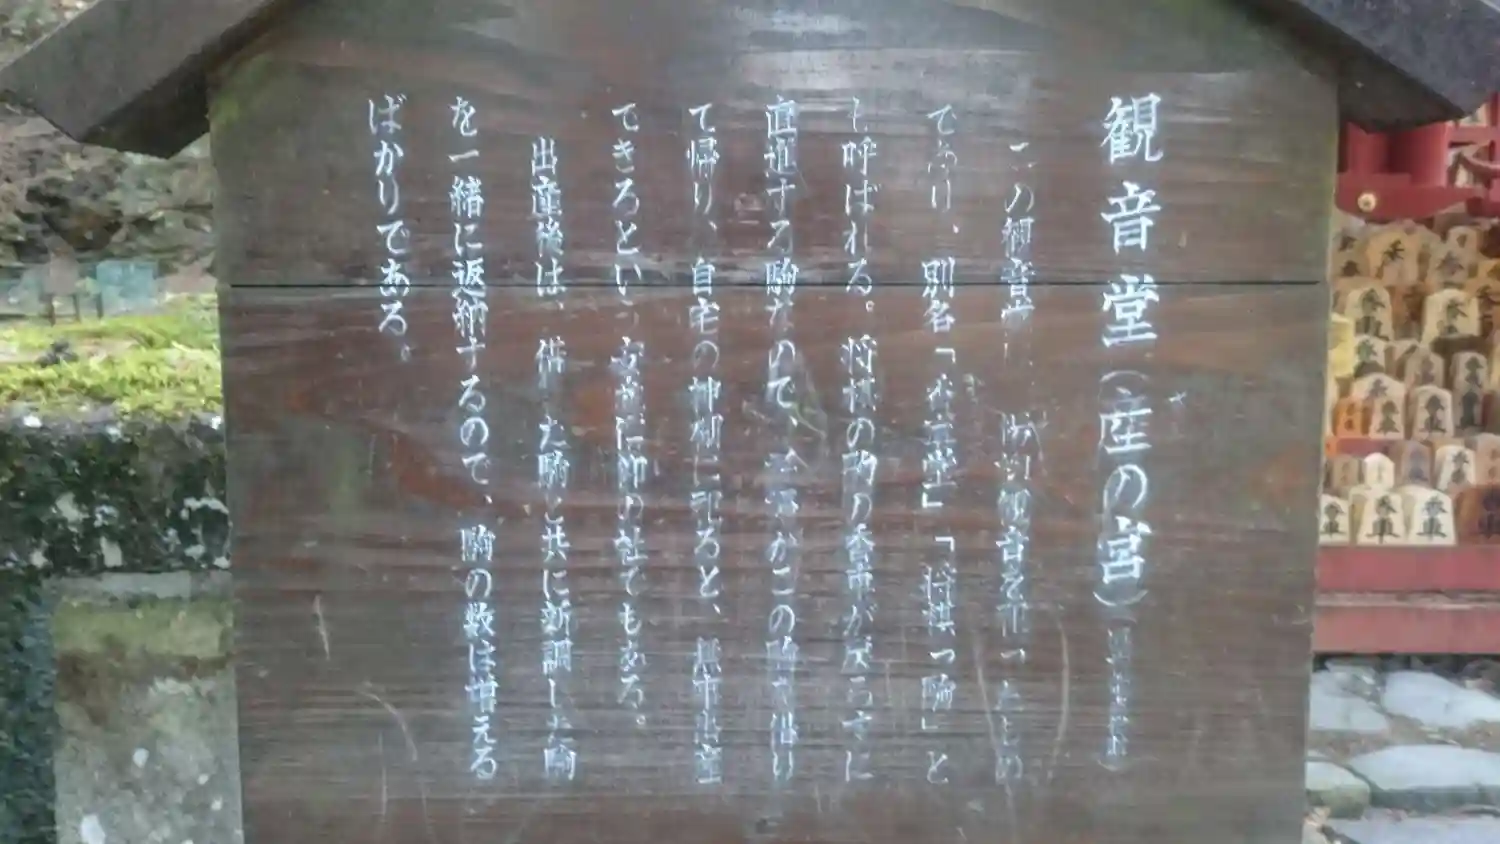 観音堂(産の宮)
この観音堂は、 観音を祀ったもの
であり、別名「香車堂」「将棋の駒」と
も呼ばれる。将棋の駒の香車が戻らずに
直進する駒なので、 がこの駒を借り
て帰り、自宅の神棚に祀ると、無事出産
できるという安産信仰の社でもある。
出産後は、借りた駒と共に新調した駒
を一緒に返納するので、駒の数は増える
ばかりである。
香車
香車
香車
香車
香車
香車